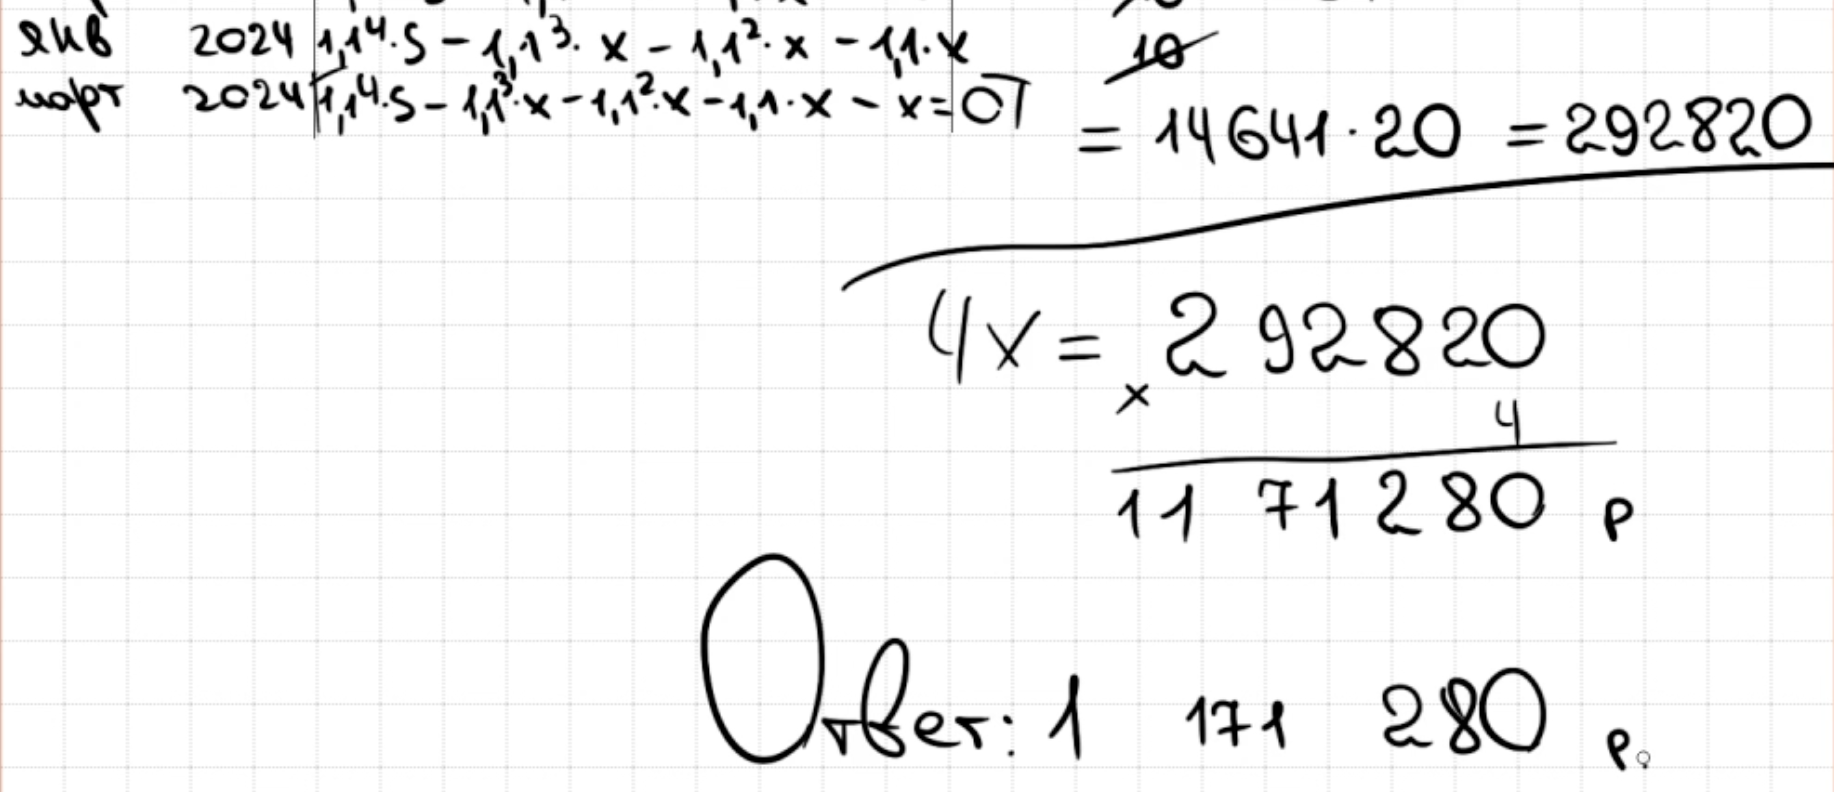 янв 2024 1,1⁴·S - 1,1³·x - 1,1²·x - 1,1·x
март 2024 1,1⁴·S - 1,1³·x - 1,1²·x - 1,1·x - x = 0
10
= 14641·20 = 292820
4x = 292820
× 4
11 71 280 р
Ответ: 1 171 280 р.